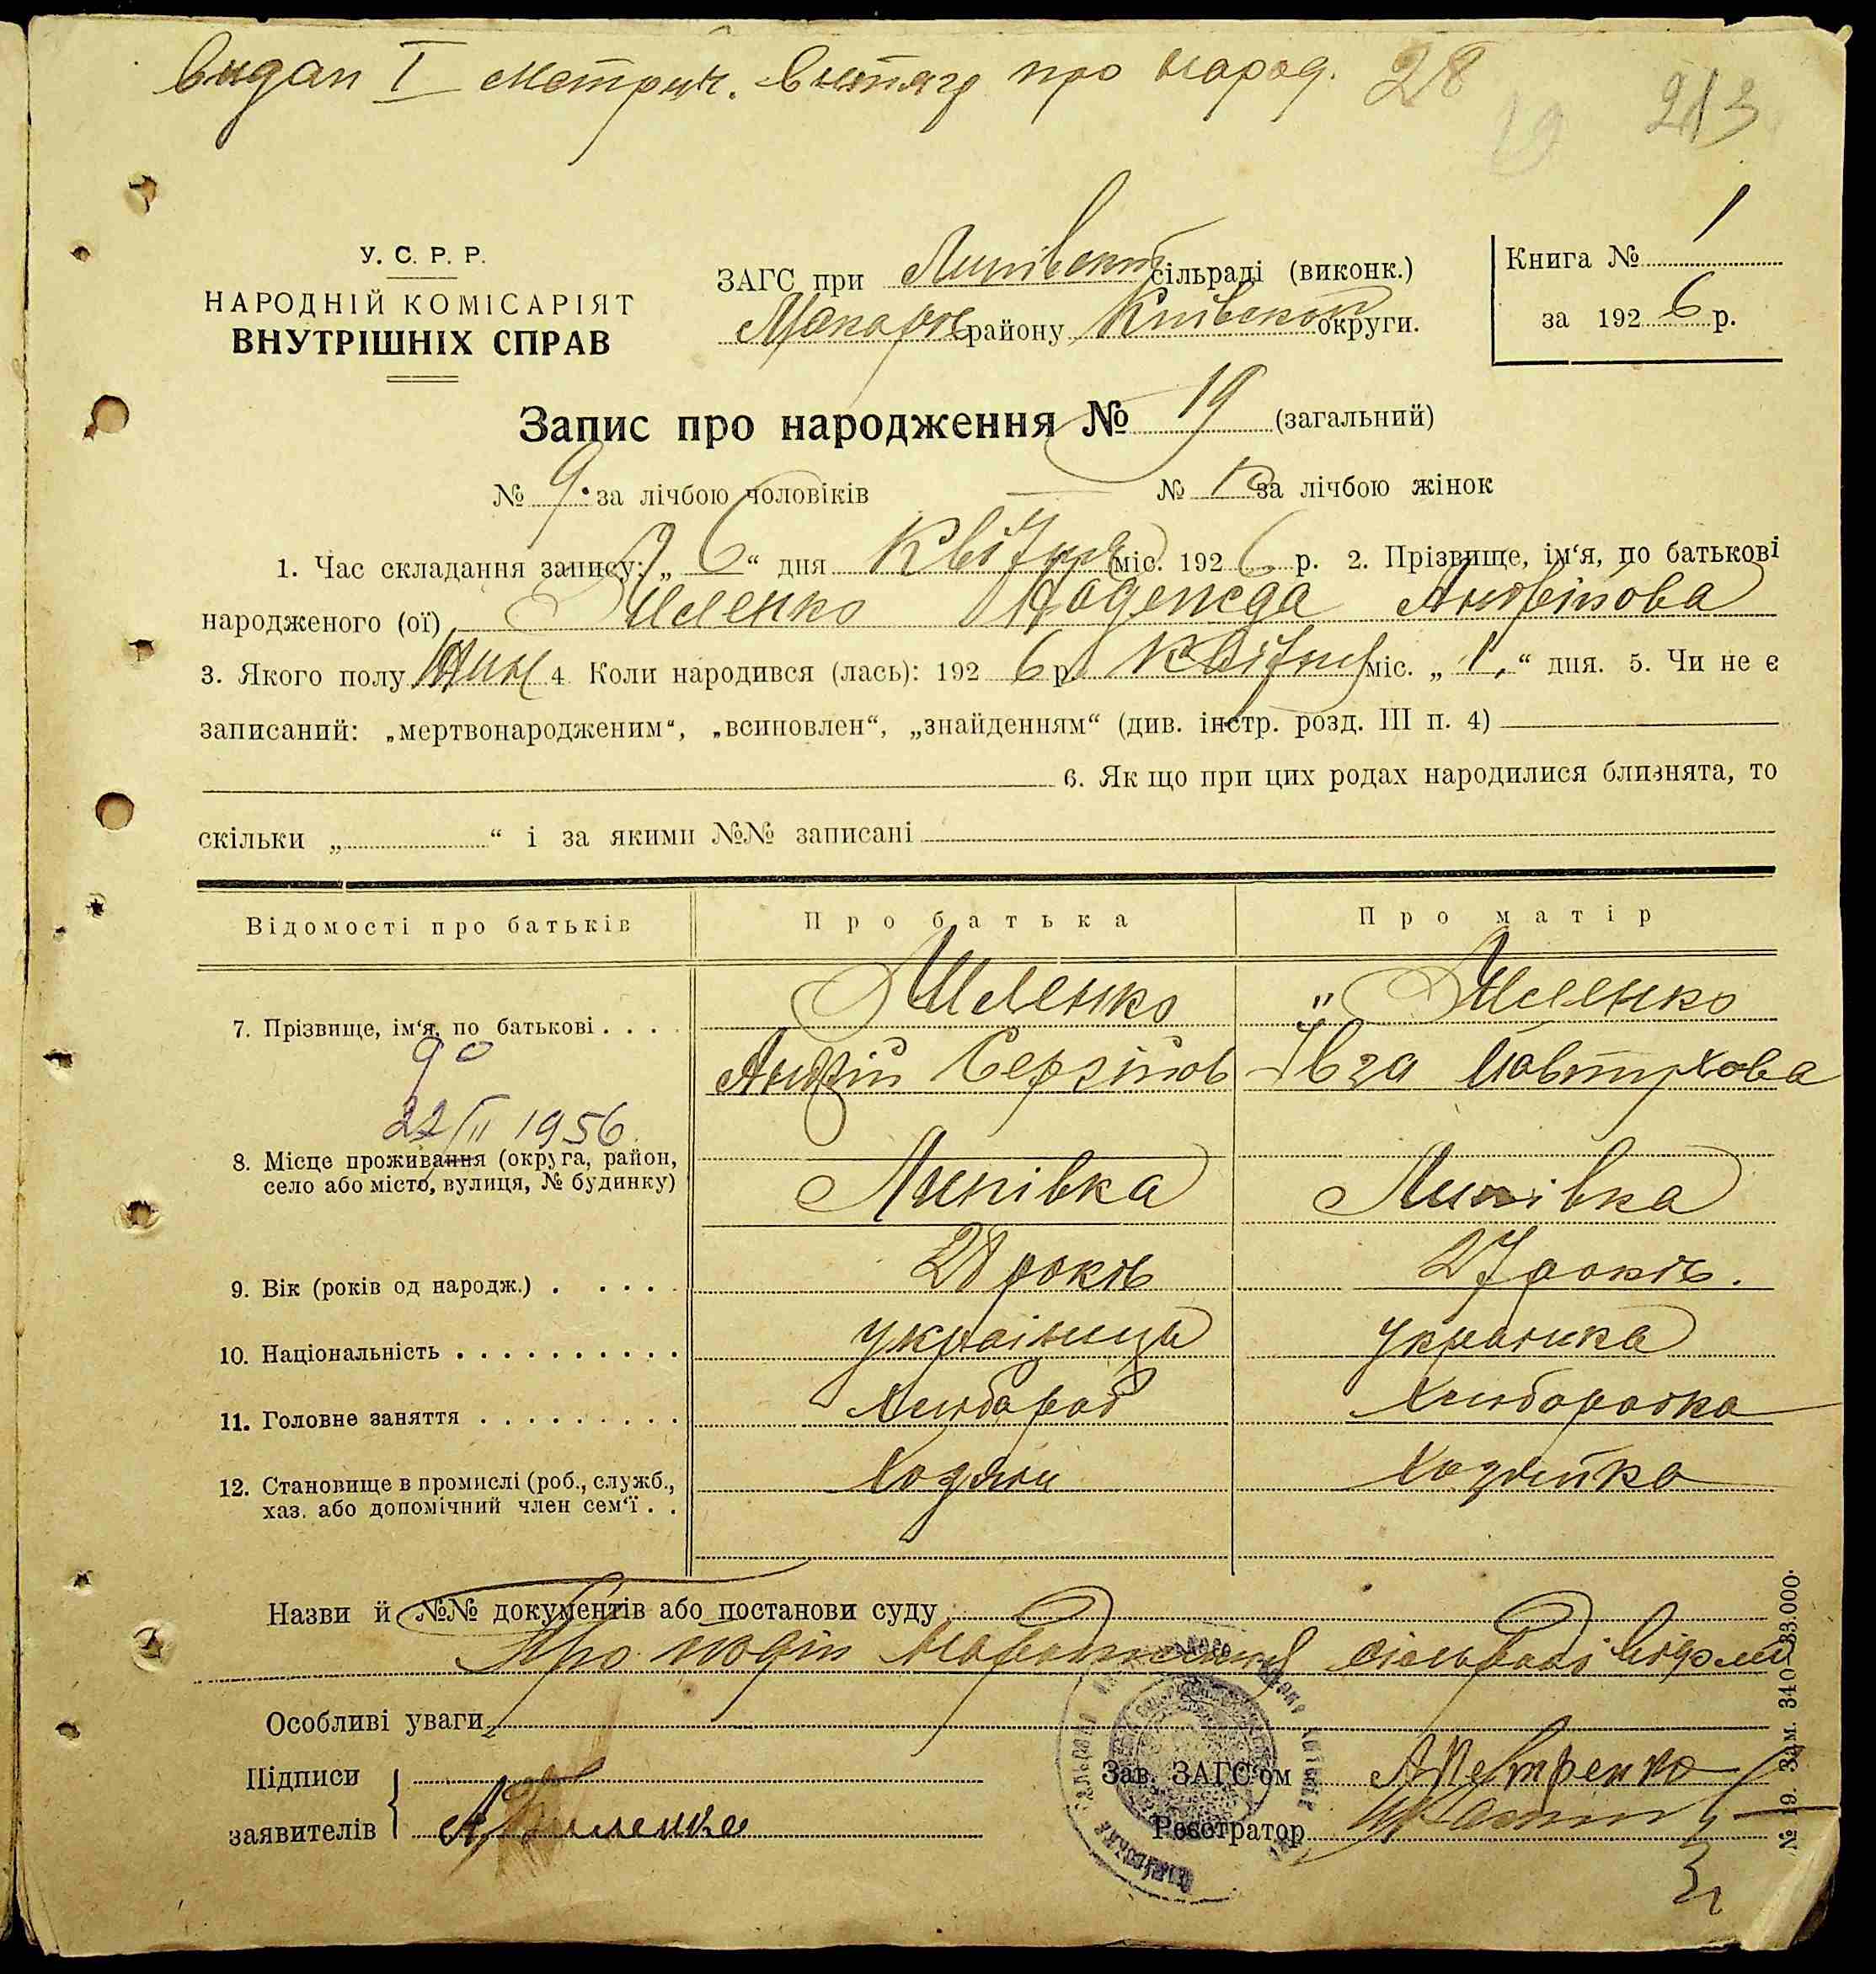 видан І метрич. витяг про народ. 28
19 213
У. С. Р. Р.
НАРОДНІЙ КОМІСАРІЯТ
ВНУТРІШНІХ СПРАВ
ЗАГС при Липівській сільраді (виконк.)
Макарів району Київської округи.
Книга № 1
за 1926 р.
Запис про народження № 19 (загальний)
№ 9 за лічбою чоловіків № 10 за лічбою жінок
1. Час складання запису: „6“ дня Квітня міс. 1926 р. 2. Прізвище, ім‘я, по батькові
народженого (ої) Надежда Андріїова
3. Якого полу Жін 4 Коли народився (лась): 1926 р. Квітня міс. „1“ дня. 5. Чи не є
записаний: „мертвонародженим“, „всиновлен“, „знайденням“ (див. інстр. розд. III п. 4)
6. Як що при цих родах народилися близнята, то
скільки „ “ і за якими №№ записані
Відомості про батьків Про батька Про матір
7. Прізвище, ім‘я, по батькові . . . .
Андрій Сергіїов Івга Павтухова
22/II 1956
8. Місце проживання (округа, район,
село або місто, вулиця, № будинку)
Липівка Липівка
9. Вік (років од народж.) . . . . . 28 років 27 років.
10. Національність . . . . . . . . . . українець Українка
11. Головне заняття . . . . . . . . . Хлібороб Хліборобка
12. Становище в промислі (роб., служб.,
хаз. або допомічний член сем‘ї . .
Хозяїн Хазяйка
Назви й №№ документів або постанови суду
Про подію народження сільраді відомо
Особливі уваги
Підписи
заявителів
Зав. ЗАГС‘ом А Петренко
Реєстратор
№ 19. Зам. 340—33.000.